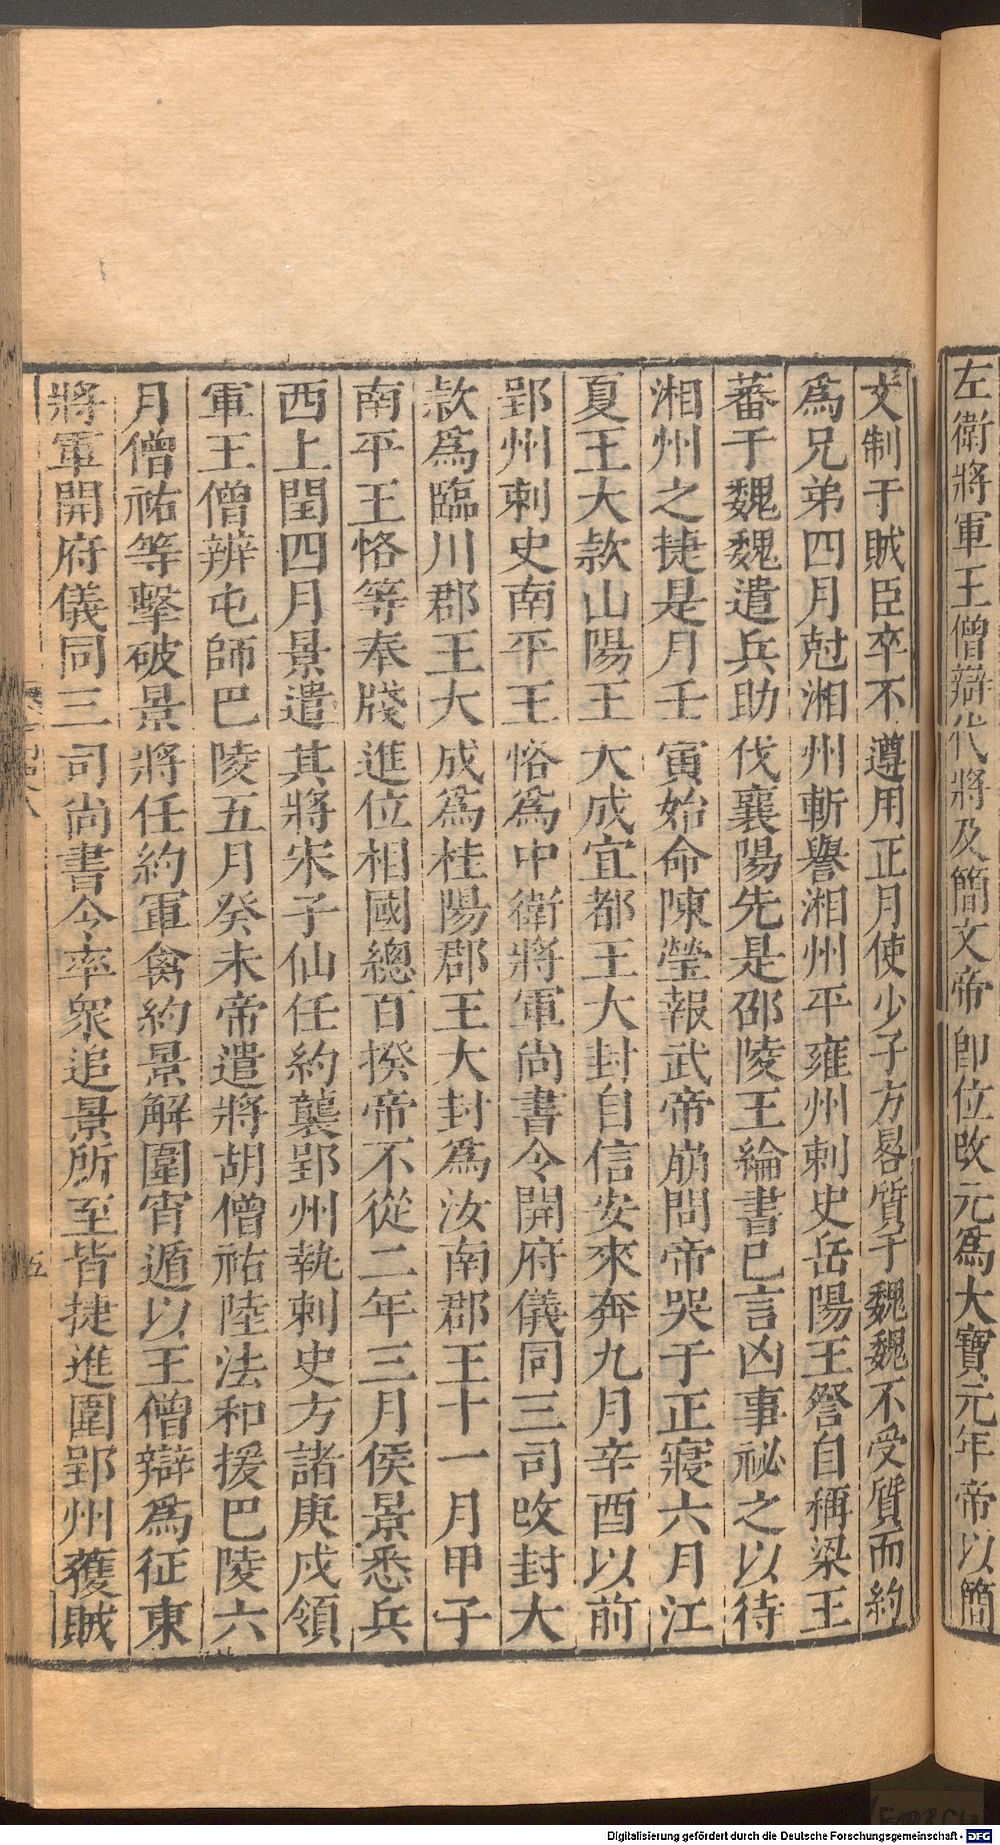 左衛將軍王僧辯代將及簡文帝卽位改元爲大寶元年帝以簡
文制于賊臣卒不遵用正月使少子方畧質于魏魏不受質而約
爲兄弟四月尅湘州斬譽湘州平雍州刺史岳陽王詧自稱梁王
蕃于魏魏遣兵助伐襄陽先是邵陵王綸書已言凶事祕之以待
湘州之捷是月壬寅始命陳瑩報武帝崩問帝哭于正寢六月江
夏王大款山陽王大成宜都王大封自信安來奔九月辛酉以前
郢州刺史南平王恪爲中衛將軍尚書令開府儀同三司改封大
款爲臨川郡王大成爲桂陽郡王大封爲汝南郡王十一月甲子
南平王恪等奉牋進位相國總百揆帝不從二年三月侯景悉兵
西上閏四月景遣其將宋子仙任約襲郢州執刺史方諸庚戍領
軍王僧辨屯師巴陵五月癸未帝遣將胡僧祐陸法和援巴陵六
月僧祐等擊破景將任約軍禽約景解圍宵遁以王僧辯爲征東
將軍開府儀同三司尚書令率衆追景所至皆捷進圍郢州獲賊
五
Digitalisierung gefördert durch die Deutsche Forschungsgemeinschaft - DFG